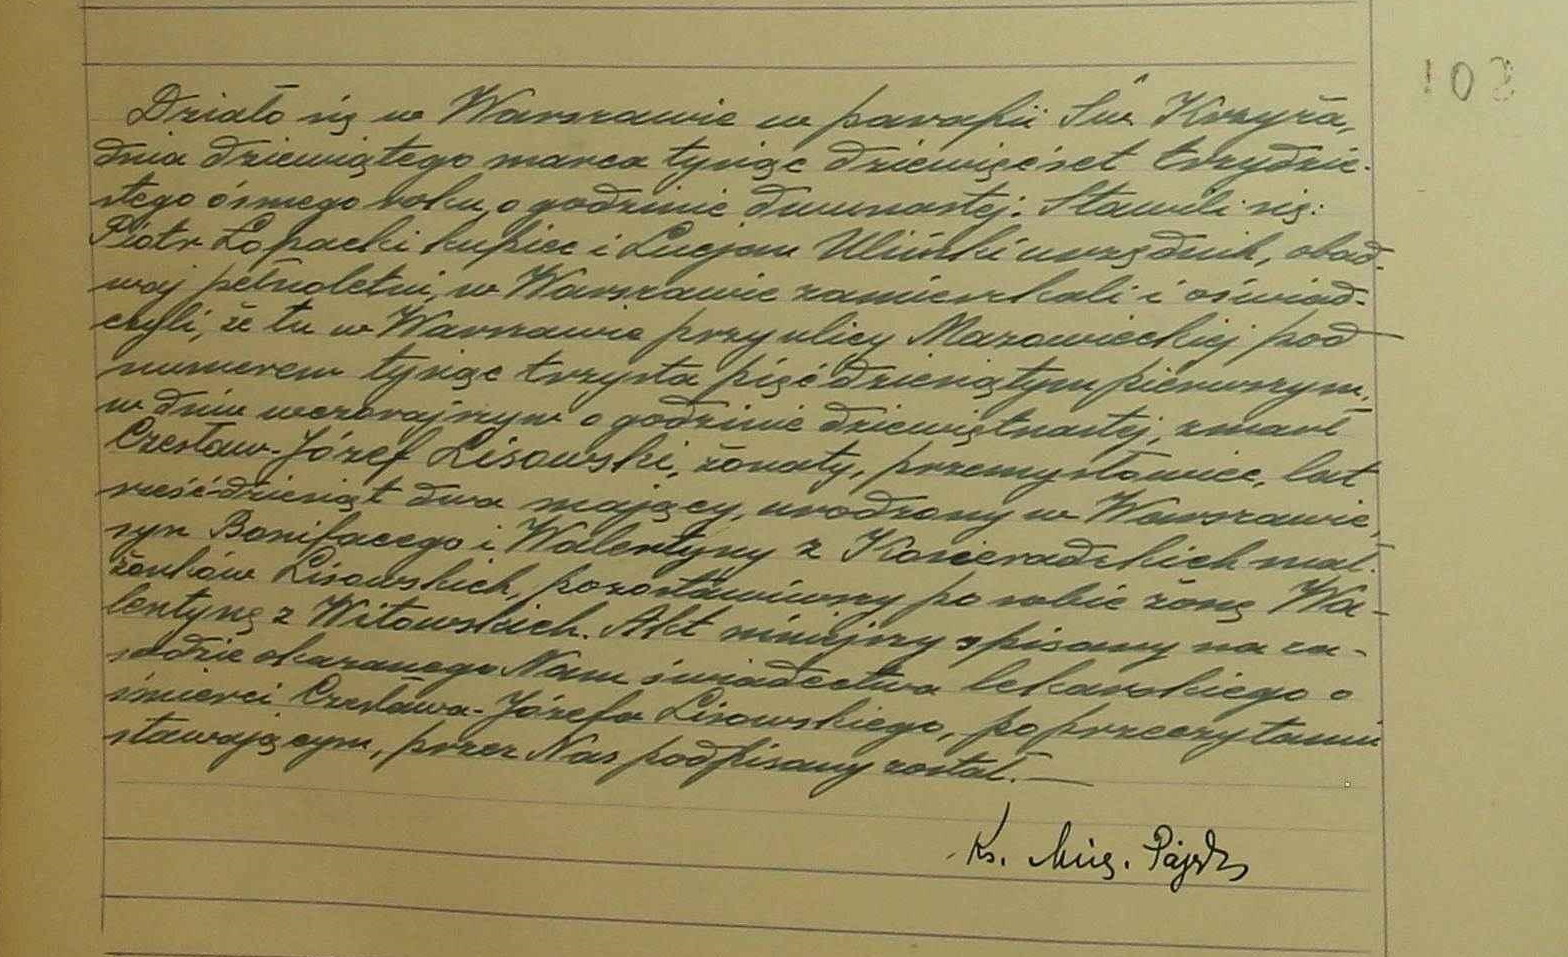 103
Działo się w Warszawie w parafii Św. Krzyża,
dnia dziewiątego marca tysiąc dziewięćset trzydzie-
stego ósmego roku, o godzinie dwunastej. Stawili się:
Piotr Łopacki kupiec i Lucjan Uliński urzędnik, obad-
waj pełnoletni, w Warszawie zamieszkali i oświad-
czyli, że tu w Warszawie przy ulicy Mazowieckiej pod
numerem tysiąc trzysta pięćdziesiątym pierwszym,
w dniu wczorajszym o godzinie dziewiętnastej, zmarł
Czesław-Józef Lisowski, żonaty, przemysłowiec, lat
sześćdziesiąt dwa mający, urodzony w Warszawie,
syn Bonifacego i Walentyny z małż-
żonków Lisowskich, pozostawiwszy po sobie żonę Wa-
lentynę z Witowskich. Akt niniejszy spisany na za-
sadzie okazanego Nam świadectwa lekarskiego o
śmierci Czesława-Józefa Lisowskiego, po przeczytaniu
stawającym, przez Nas podpisany został.
Ks.